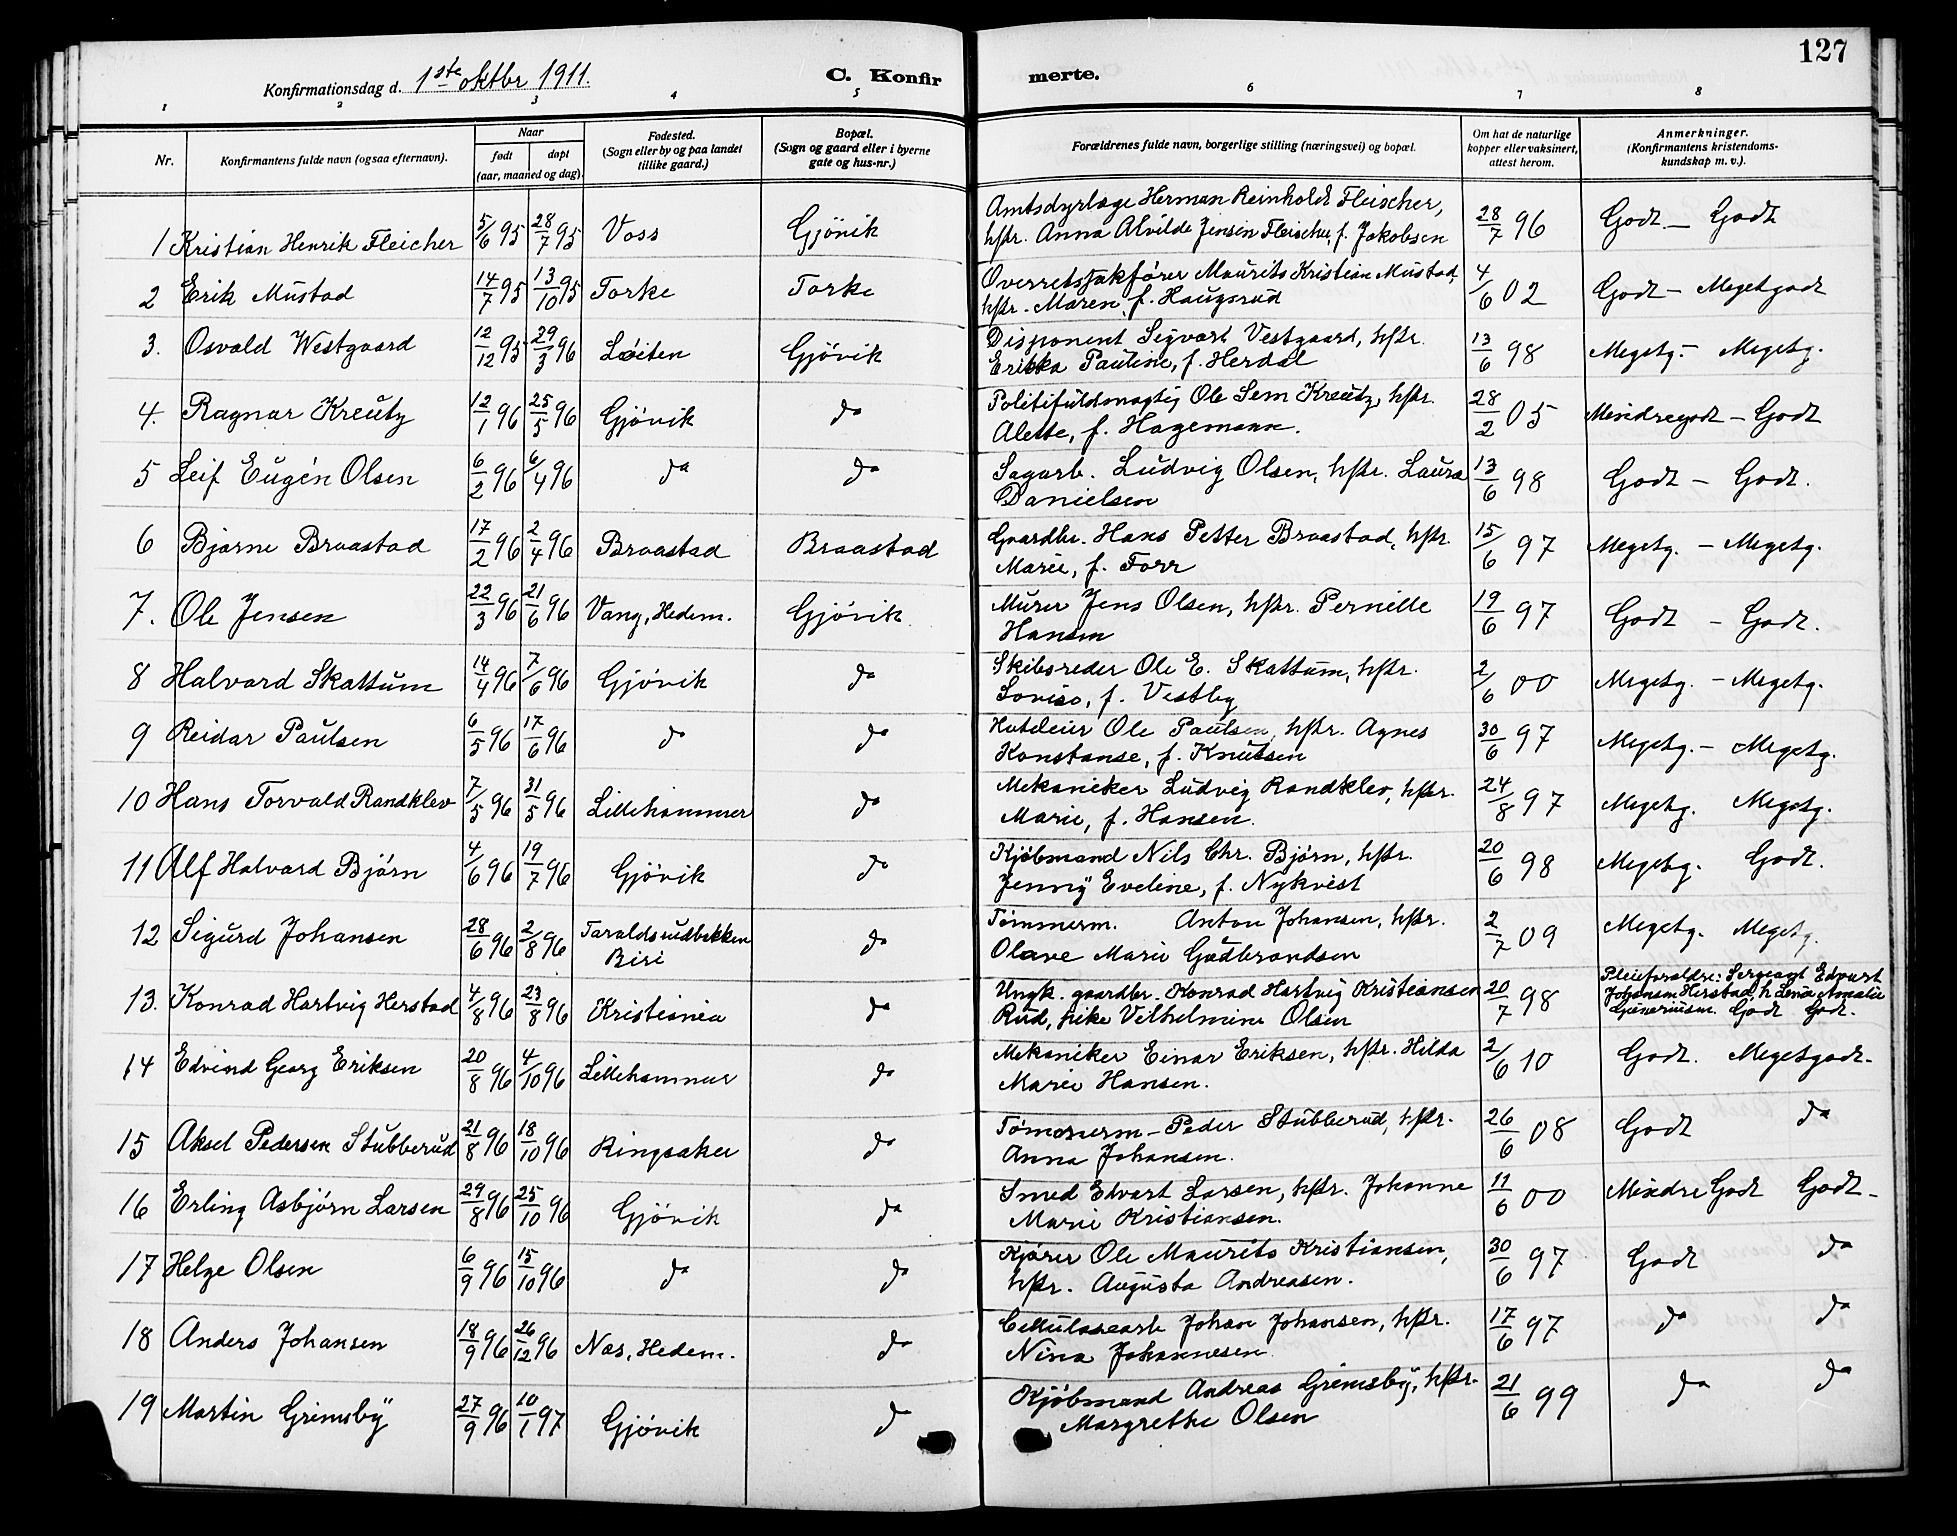 127
Konfirmationsdag d. 1ste oktbr 1911.
C. Konfirmerte.
1 2 3 4 5 6 7 8
Nr.
Konfirmantens fulde navn (ogsaa efternavn).
Naar
født døpt
(aar, maaned og dag).
Fødested.
(Sogn eller by og paa landet
tillike gaard.)
Bopæl.
(Sogn og gaard eller i byerne
gate og hus-nr.)
Forældrenes fulde navn, borgerlige stilling (næringsvei) og bopæl.
Om hat de naturlige
kopper eller vaksinert,
attest herom.
Anmerkninger.
(Konfirmantens kristendoms-
kundskap m. v.).
1 Kristian Henrik Fleicher 5/6 95 28/7 95 Voss Gjövik Amtsdyrlæge Herman Reinholdt Fleischer,
hstr. Anna Alvilde Jensen Fleischer, f. Jakobsen 28/7 96 Godt – Godt
2 Erik Mustad 14/7 95 13/10 95 Torke Torke Overretssakfører Maurits Kristian Mustad,
hstr. Maren, f. Haugsrud 4/6 02 Godt – Megetgodt
3. Osvald Westgaard 12/12 95 29/3 96 Løiten Gjövik Disponent Sigvart Vestgaard, hstr.
Erikka Pauline, f. Herdal 13/6 98 Megetg. – Megetg.
4. Ragnar Kreutz 12/1 96 25/5 96 Gjövik do Politifuldmægtig Ole Sem Kreutz, hstr.
Alette, f. Hagemann. 28/2 05 Mindregodt – Godt
5 Leif Eugén Olsen 6/2 96 6/4 96 do do Sagarb. Ludvig Olsen, hstr. Laura
Danielsen 13/6 98 Godt – Godt.
6 Bjarne Braastad 17/2 96 2/4 96 Braastad Braastad Gaardbr. Hans Petter Braastad, hstr.
Marie, f. Forr 15/6 97 Megetg. – Megetg.
7. Ole Jensen 22/3 96 21/6 96 Vang, Hedem. Gjövik Murer Jens Olsen, hstr. Pernille
Hansen 19/6 97 Godt – Godt.
8 Halvard Skattum 14/4 96 7/6 96 Gjövik do Skibsreder Ole E. Skattum, hstr.
Loviso, f. Vestby 2/6 00 Megetg. – Megetg.
9 Reidar Paulsen 6/5 96 17/6 96 do do Hoteleier Ole Paulsen, hstr. Agnes
Konstanse, f. Knutsen 30/6 97 Megetg. – Megetg.
10 Hans Torvald Randklev 7/5 96 31/5 96 Lillehammer do Mekaniker Ludvig Randklev, hstr.
Marie, f. Hansen. 24/8 97 Megetg. Megetg.
11 Alf Halvard Björn 4/6 96 19/7 96 Gjövik do Kjøbmand Nils Chr. Bjørn, hstr.
Jenny Eveline, f. Nykvist 20/6 98 Megetg. Godt.
12 Sigurd Johansen 28/6 96 2/8 96 Taraldsrudbakken
Biri do Tømmerm. Anton Johansen, hstr.
Olave Marie Gudbrandsen 2/7 09 Megetg. Megetg.
13. Konrad Hartvig Herstad 4/8 96 23/8 96 Kristiania do Ungk. gaardbr. Konrad Hartvig Kristiansen
Rud, pike Vilhelmine Olsen 20/7 98 Pleieforældre: Sergeant Edvart
Johansen Herstad, h. Lina Amalie
Godt Godt.
14 Edvind Georg Eriksen 20/8 96 4/10 96 Lillehammer do Mekaniker Einar Eriksen, hstr. Hilda
Marie Hansen. 2/6 10 Godt. Megetgodt.
15 Aksel Pedersen Stubberud 21/8 96 18/10 96 Ringsaker do Tömmerm – Peder Stubberud, hstr.
Anna Johansen. 26/6 08 Godt do
16 Erling Asbjørn Larsen 29/8 96 25/10 96 Gjövik do Smed Edvart Larsen, hstr. Johanne
Marie Kristiansen. 11/6 00 Mindre Godt Godt –
17 Helge Olsen 6/9 96 15/10 96 do do Kjører Ole Maurits Kristiansen,
hstr. Augusta Andreasen. 30/6 97 Godt do
18 Anders Johansen 18/9 96 26/12 96 Nas, Hedem. do Cellulosearb Johan Johansen, hstr.
Nina Johannesen. 17/6 97 do do
19 Martin Grimsby 27/9 96 10/1 97 Gjövik do Kjøbmand Andreas Grimsby, hstr.
Margrethe Olsen 21/6 99 do do